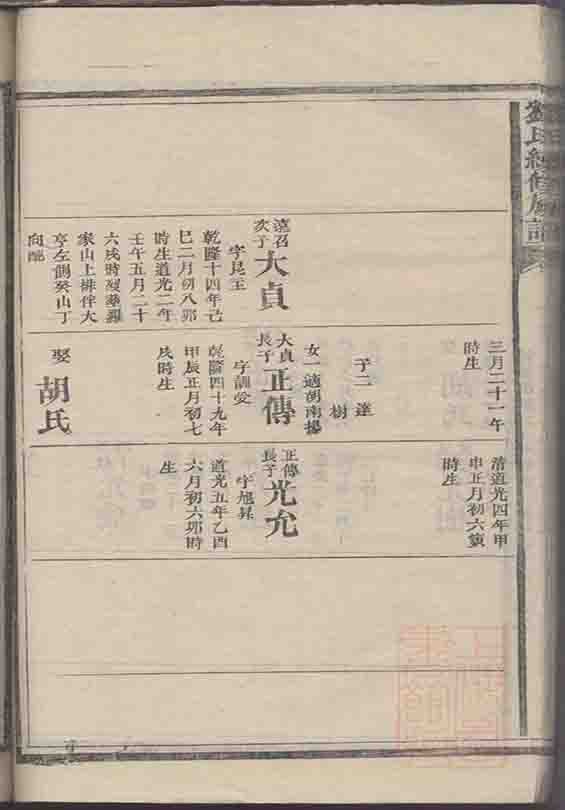 氏續修族譜
遠召次子大貞
字昆玉
乾隆十四年己
巳二月初八卯
時生道光二年
壬午五月二十
六戌時歿葬羅
家山上排伴大
亨左側癸山丁
向配
三月二十一午
時生
子二達
樹
女一適胡南揚
大貞長子正傳
字訓愛
乾隆四十九年
甲辰正月初七
戌時生
娶胡氏
清道光四年甲
申正月初六寅
時生
正傳長子光允
字旭昇
道光五年乙酉
六月初六卯時
生